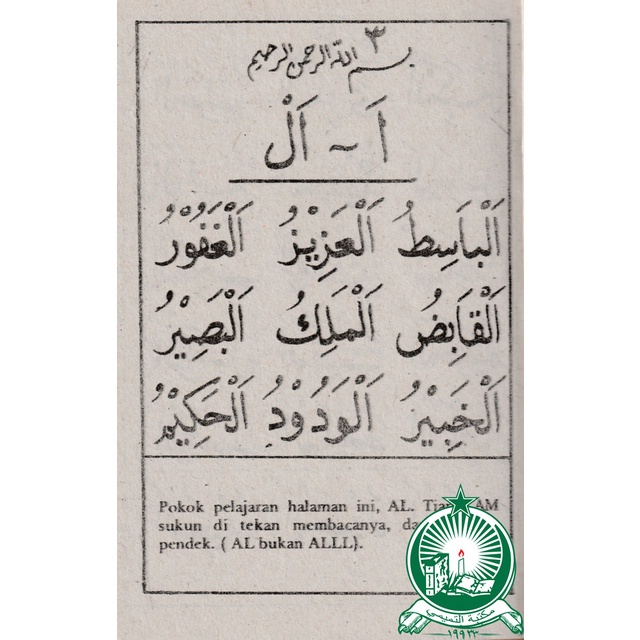 ٣
بسم الله الرحمن الرحيم
اَ - اَلْ
اَلْبَاسِطُ اَلْعَزِيْزُ اَلْغَفُوْرُ
اَلْقَابِضُ اَلْمَلِكُ اَلْبَصِيْرُ
اَلْخَبِيْرُ اَلْوَدُوْدُ اَلْحَكِيْمُ
Pokok pelajaran halaman ini, AL.
sukun di tekan membacanya,
pendek. ( AL bukan ALLL).
مكتبة التميمي